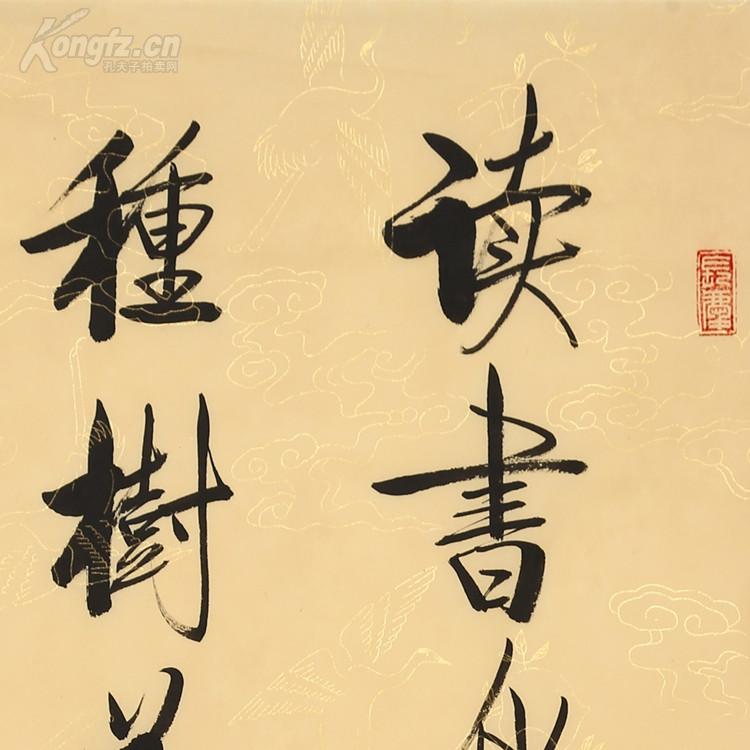 Kongfz.cn
孔夫子拍卖网
读書
種樹